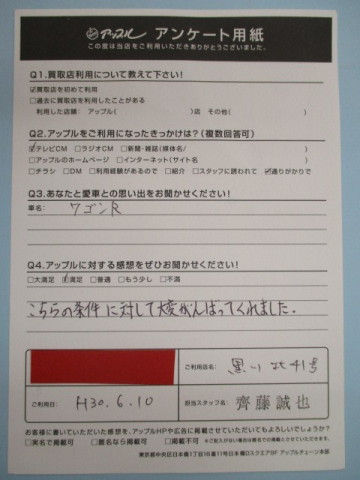 アップル アンケート用紙
この度は当店をご利用いただきありがとうございました。
Q1.買取店利用について教えて下さい!
☑買取店を初めて利用
□過去に買取店を利用したことがある
利用した店舗: アップル( )店 その他( )
Q2.アップルをご利用になったきっかけは?(複数回答可)
☑テレビCM □ラジオCM □新聞・雑誌(媒体名/ )
□アップルのホームページ □インターネット(サイト名 )
□チラシ □DM □利用経験があるので □紹介 □スタッフに誘われて ☑通りがかりで
Q3.あなたと愛車との思い出をお聞かせください!
車名: ワゴンR
Q4.アップルに対する感想をぜひお聞かせください!
□大満足 ☑満足 □普通 □もう少し □不満
こちらの条件に対して大変がんばってくれました。
ご利用店名: 黒川北41号
ご利用日: H30.6.10
担当スタッフ名: 齊藤誠也
お客様に書いていただいた感想を、アップルHPや広告に掲載させていただいてもよろしいでしょうか?
□実名で掲載可 □匿名なら掲載可 □掲載不可 ※ご記入がない場合は匿名での掲載とさせていただきます。
東京都中央区日本橋1丁目16番11号日本橋Dスクエア8F アップルチェーン本部